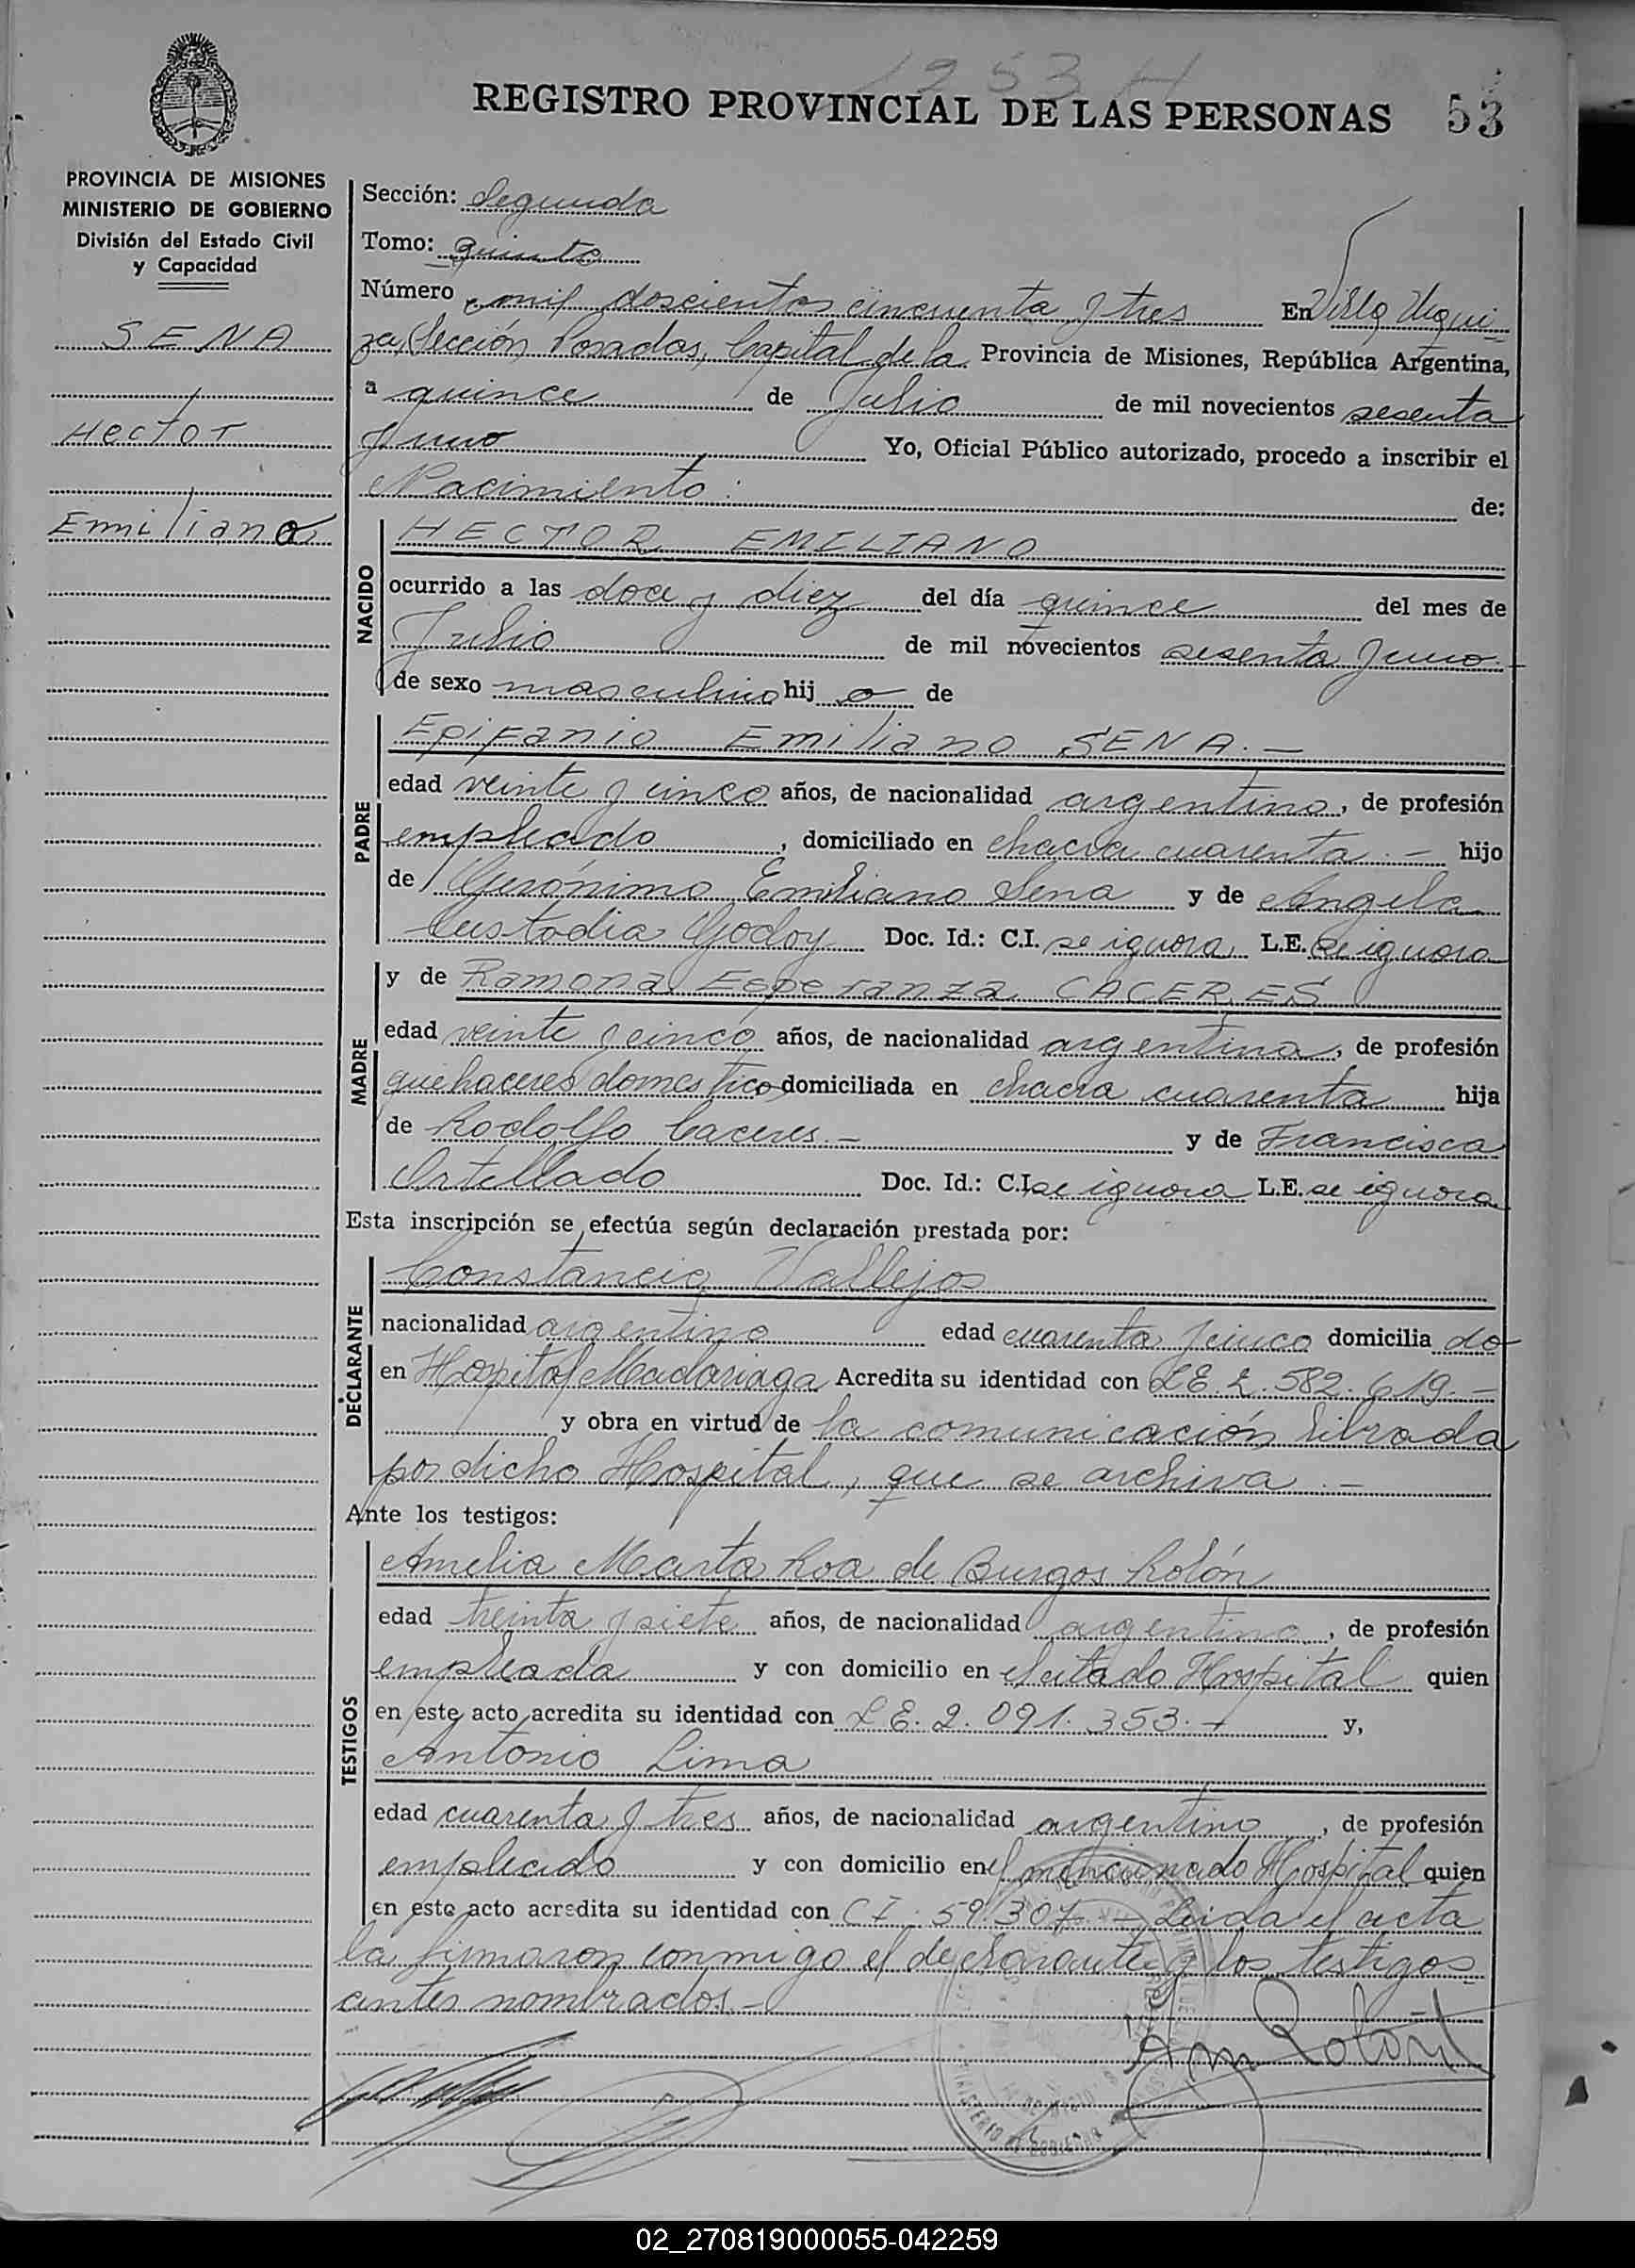 1253 H
REGISTRO PROVINCIAL DE LAS PERSONAS 53
PROVINCIA DE MISIONES
MINISTERIO DE GOBIERNO
División del Estado Civil
y Capacidad
SENA
Hector
Emiliano
Sección: Segunda
Tomo: Quinto
Número mil doscientos cincuenta y tres En Villa Urqui-
za, Sección Posadas, Capital de la Provincia de Misiones, República Argentina,
a quince de Julio de mil novecientos sesenta
y uno Yo, Oficial Público autorizado, procedo a inscribir el
Nacimiento: de:
NACIDO
HECTOR EMILIANO
ocurrido a las doce y diez del día quince del mes de
Julio de mil novecientos sesenta y uno.-
de sexo masculino hij o de
PADRE
Epifanio Emiliano SENA.-
edad veinte y cinco años, de nacionalidad argentina, de profesión
empleado, domiciliado en chacra cuarenta.- hijo
de Gerónimo Emiliano Sena y de Angela
Custodia Godoy Doc. Id.: C.I. se ignora L.E. se ignora
MADRE
y de Ramona Esperanza CACERES
edad veinte y cinco años, de nacionalidad argentina, de profesión
quehaceres domestico domiciliada en chacra cuarenta hija
de Rodolfo Caceres.- y de Francisca
Ortellado Doc. Id.: C.I. se ignora L.E. se ignora
Esta inscripción se efectúa según declaración prestada por:
DECLARANTE
Constancia Vallejos
nacionalidad argentino edad cuarenta y cinco domicilia do
en Hospital Madariaga Acredita su identidad con LE. 2.582.619.-
y obra en virtud de la comunicación librada
por dicho Hospital, que se archiva.-
Ante los testigos:
TESTIGOS
Amelia Marta Roa de Burgos Rolón
edad treinta y siete años, de nacionalidad argentina, de profesión
empleada y con domicilio en el citado Hospital quien
en este acto acredita su identidad con LE. 2.091.353.- y,
Antonio Lima
edad cuarenta y tres años, de nacionalidad argentino, de profesión
empleado y con domicilio en el mencionado Hospital quien
en este acto acredita su identidad con CI. 59.307.- Leida el acta
la firmaron conmigo el declarante y los testigos
antes nombrados.-
MINISTERIO DE GOBIERNO
02_270819000055-042259